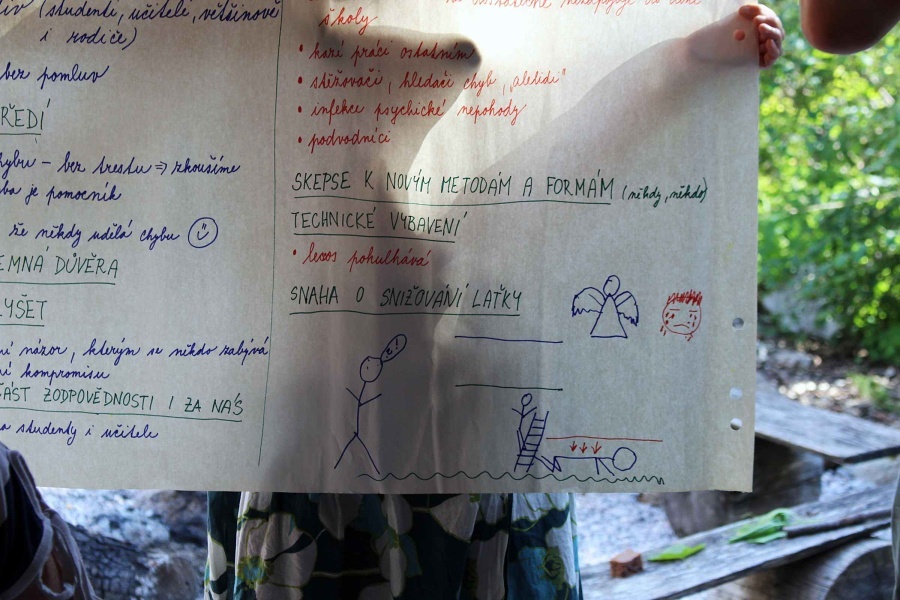 (studenti, učitelé, většinově
i rodiče)
bez pomluv
ŘEDÍ
chybu – bez trestu ⇒ zkoušíme
ba je pomocník
že někdy udělá chybu
EMNÁ DŮVĚRA
YŠET
ní názor, kterým se někdo zabývá
ní kompromisu
ÁST ZODPOVĚDNOSTI I ZA NÁS
a studenty i učitele
školy
• kazí práci ostatním
• stěžovači, hledači chyb,
• infekce psychické nepohody
• podvodníci
SKEPSE K NOVÝM METODÁM A FORMÁM (někdy, někdo)
TECHNICKÉ VYBAVENÍ
• pokulhává
SNAHA O SNIŽOVÁNÍ LAŤKY